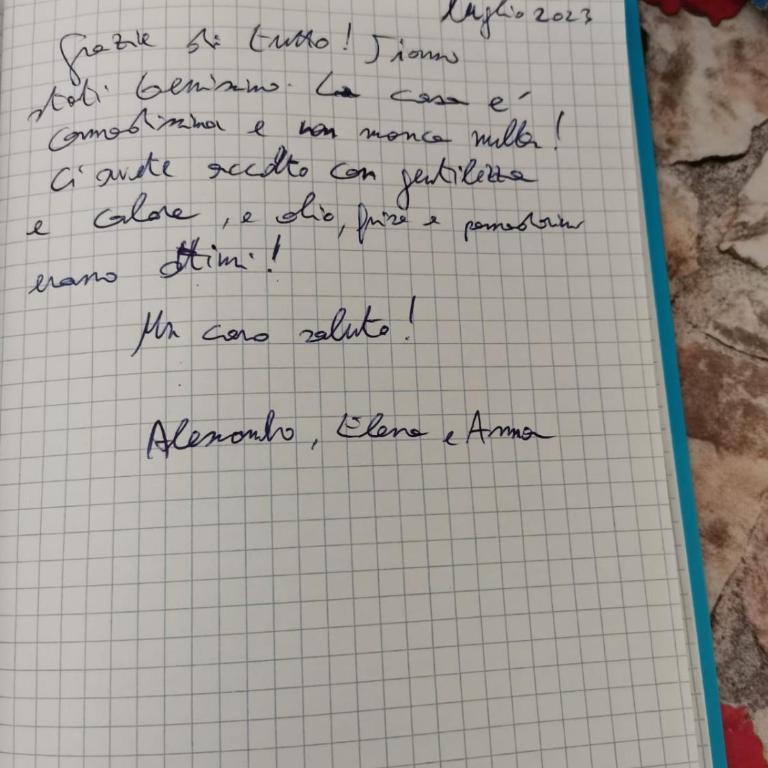 luglio 2023
Grazie di tutto! Siamo
stati benissimo. La casa e'
comodissima e non manca nulla!
Ci avete accolto con gentilezza
e calore, e olio, frise e pomodorini
erano ottimi!
Un caro saluto!
Alessandro, Elena e Anna